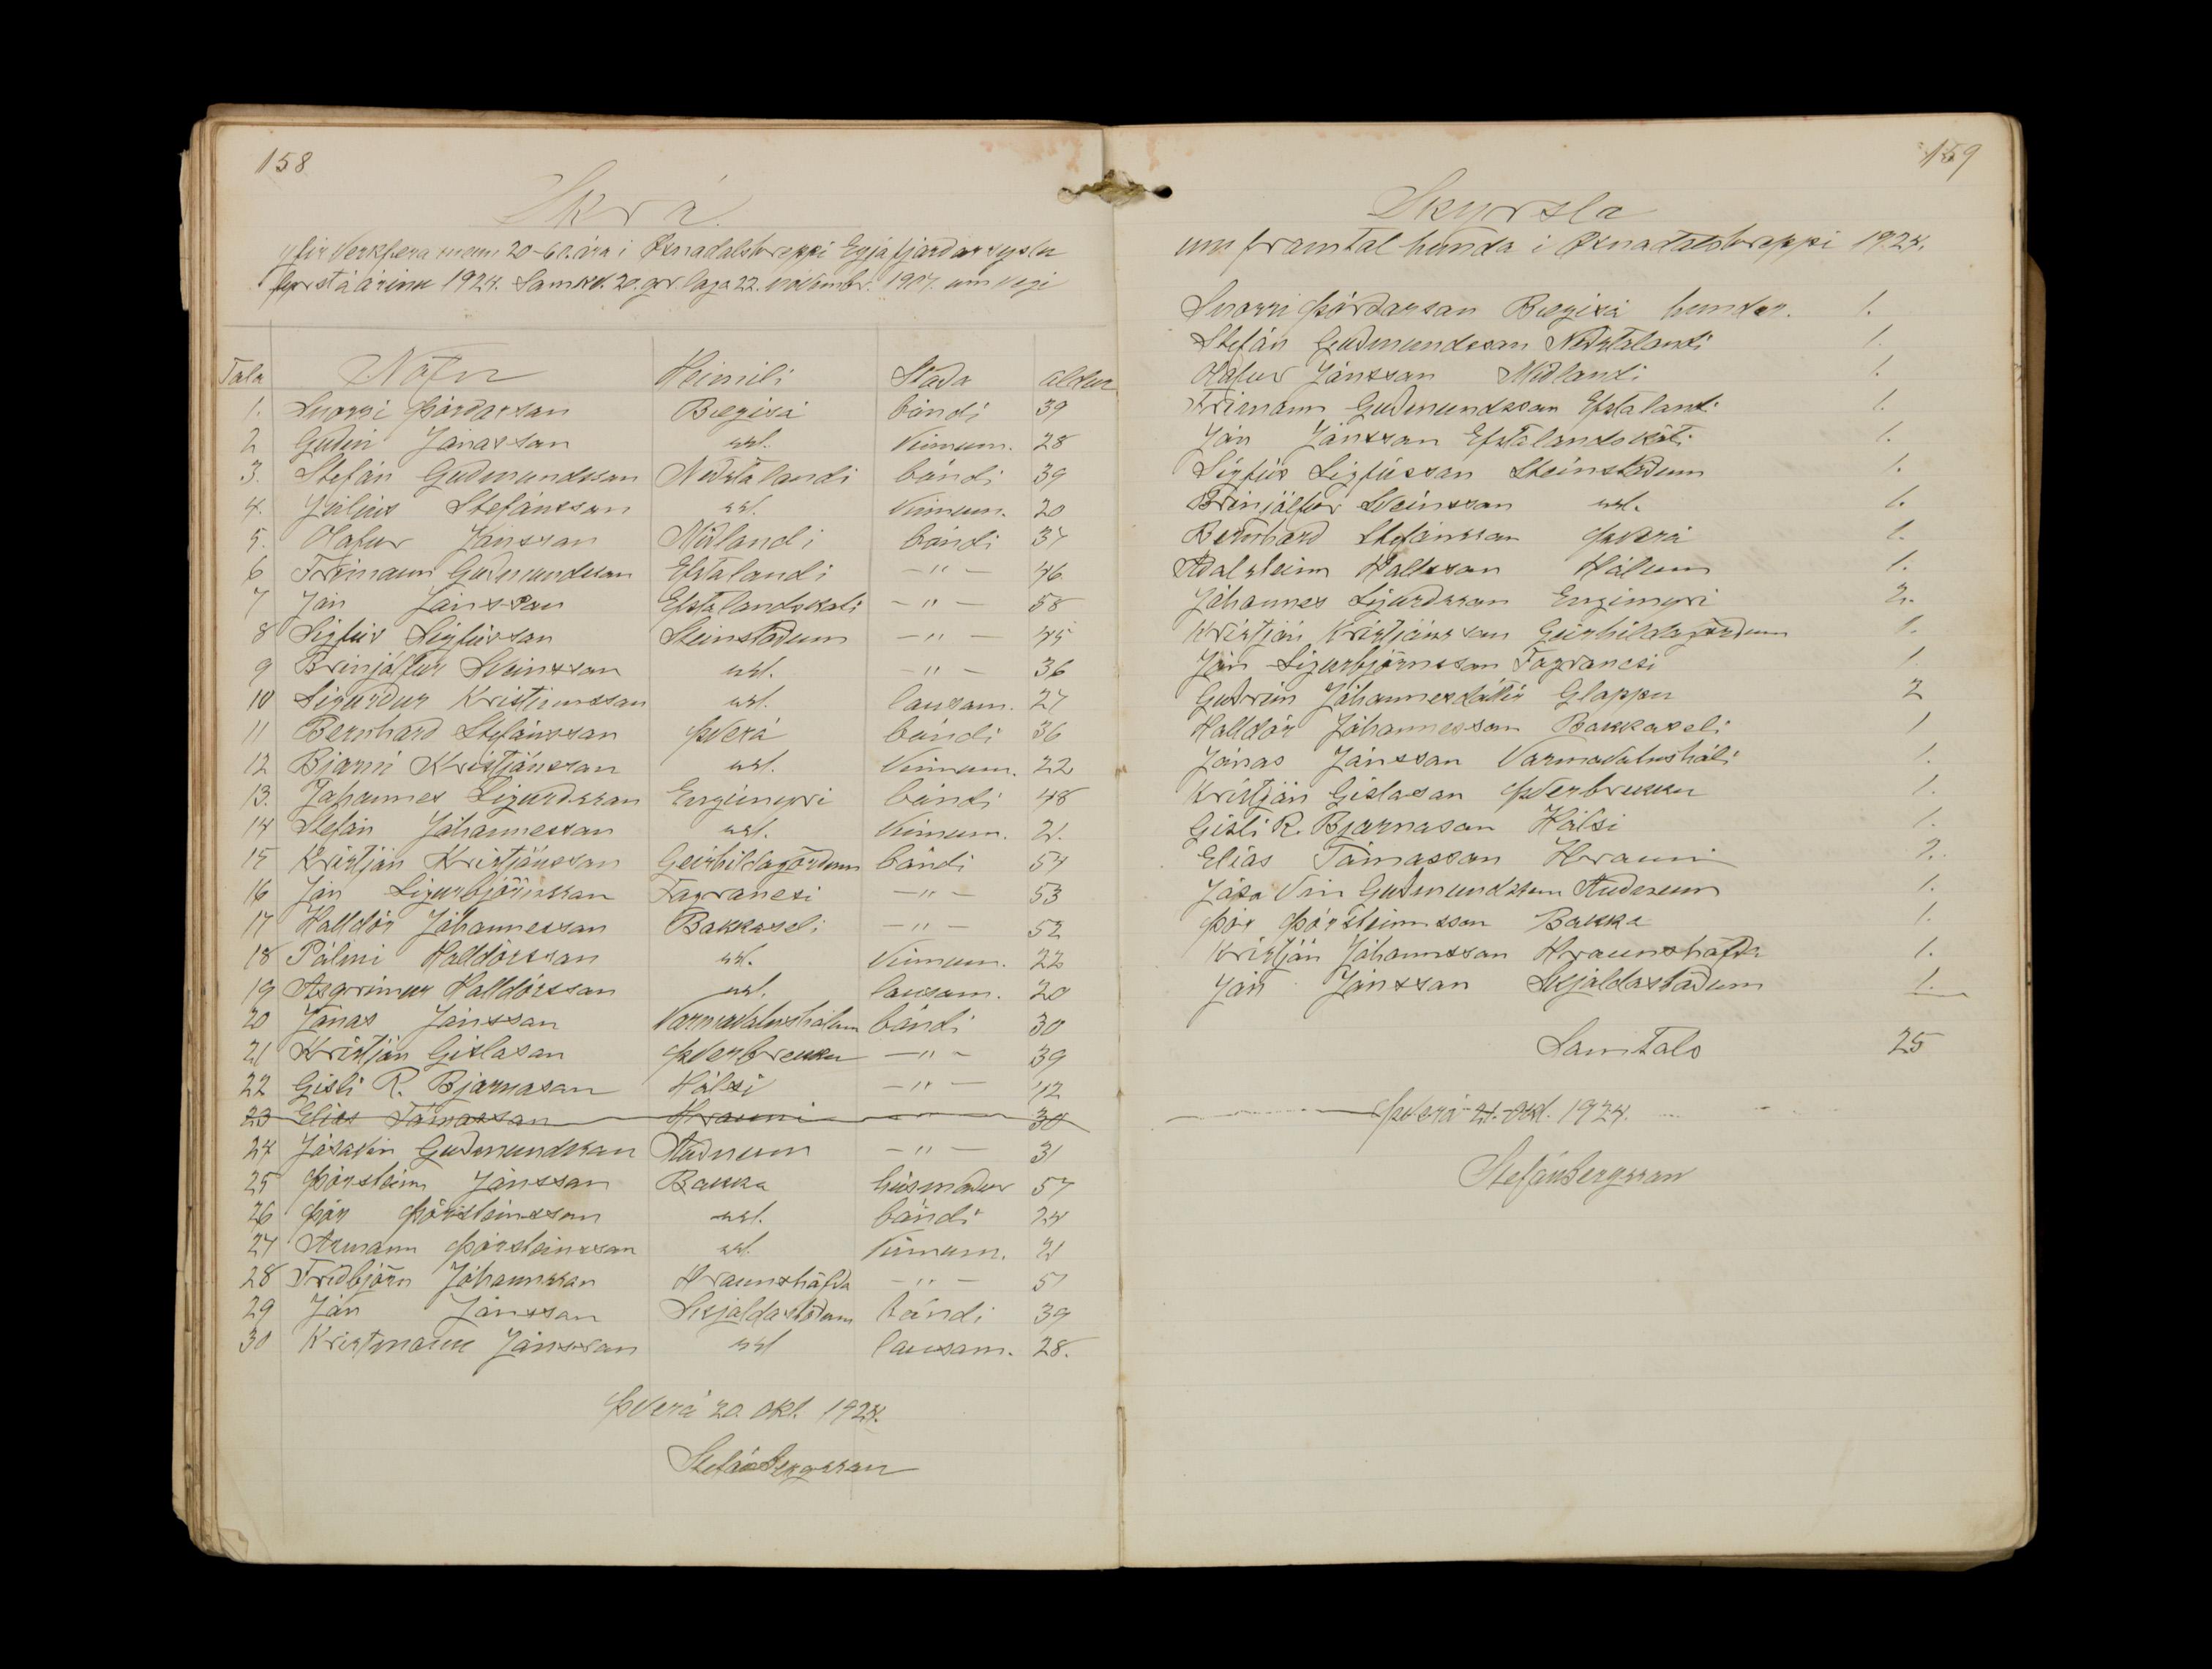 158
Skrá.
yfir Verkfæra menn 20-60 ára i Öxnadalshreppi Eyjafjardarsyslu
fyrstá árinu 1924. Samkv. 20. gr. laga 22. nóvembr. 1907. um vegi
Tala Nöfn Heimili Stada aldur
1. Snorri Þórdarson Bægisá bóndi 39
2 Jónasson ssst. Vinnum. 28
3. Stefán Gudmundsson Nedstalandi bóndi 39
4. Júlíus Stefánsson sst. Vinnum. 20
5. Olafur Jónsson Midlandi bóndi 37
6 Frimann Gudmundsson Efstalandi -"- 46
7 Jón Jónsson Efstalandskoti -"- 58
8 Sigfús Sigfússon Steinstödum -"- 45
9 Brinjólfur Sveinsson sst. -"- 36
10 Sigurdur Kristinsson sst. lausam. 27
11 Bernhard Stefánsson Þverá bóndi 36
12 Bjarni Kristjánsson sst. Vinnum. 22
13. Johannes Sigurdsson Engimyri bóndi 48
14 Stefán Jóhannesson sst. Vinnum. 21.
15 Kristján Kristjánsson Geirhildagördum bóndi 57
16 Jón Sigurbjörnsson Fagranesi -"- 53
17 Halldór Jóhannesson Bakkaseli -"- 52
18 Pálmi Halldórsson sst. Vinnum. 22
19 Asgrimur Halldórsson sst. lausam. 20
20 Jónas Jónsson Varmavatnshólum bóndi 30
21 Kristján Gislason Þverbrekku -"- 39
22 Gisli R. Bjarnason Hólsi -"- 42
23 Elias Tómasson Hrauni 30
24 Jósavin Gudmundsson Audnum -"- 31
25 Þorsteinn Jónsson Bakka húsmadur 57
26 Þór Þórsteinsson sst. bóndi 24
27 Armann Þorsteinsson sst. Vinnum. 21
28 Fridbjörn Jóhannsson Hraunshöfda -"- 51
29 Jón Jónsson Skjaldastödum bóndi 39
30 Kristmann Jónsson sst lausam. 28.
Þverá 20 okt. 1924.
Stefán Bergsson
159
Skyrsla
um framtal hunda i Öxnadalshreppi 1924.
Snorri Þórdarson Bægisá hundar. 1.
Stefán Gudmundsson Nedstalandi 1.
Olafur Jónsson Midlandi 1.
Frimann Gudmundsson Efstalandi 1.
Jón Jónsson Efstalandskoti 1.
Sigfús Sigfússon Steinstödum 1.
Brinjólfur Sveinsson sst. 1.
Bernhard Stefánsson Þverá 1.
Adalsteinn Hallsson Hólum 1.
Jóhannes Sigurdsson Engimyri 2.
Kristján Kristjánsson Geirhildagördum 1.
Jón Sigurbjörnsson Fagranesi 1
Gudrún Jóhannesdóttir Gloppu 2
Halldór Jóhannesson Bakkaseli 1
Jónas Jónsson Varmavatnshóli 1.
Kristján Gislason Þverbrekku 1.
Gisli R. Bjarnason Hólsi 1.
Elías Tómasson Hrauni 2.
Jósa Vin Gudmundsson Audnum 1.
Þór Þórsteinsson Bakka 1.
Kristján Jóhannsson Hraunshöfda 1.
Jón Jónsson Skjaldastödum 1.
Samtals 25
Þverá 21. okt. 1924.
Stefán Bergsson